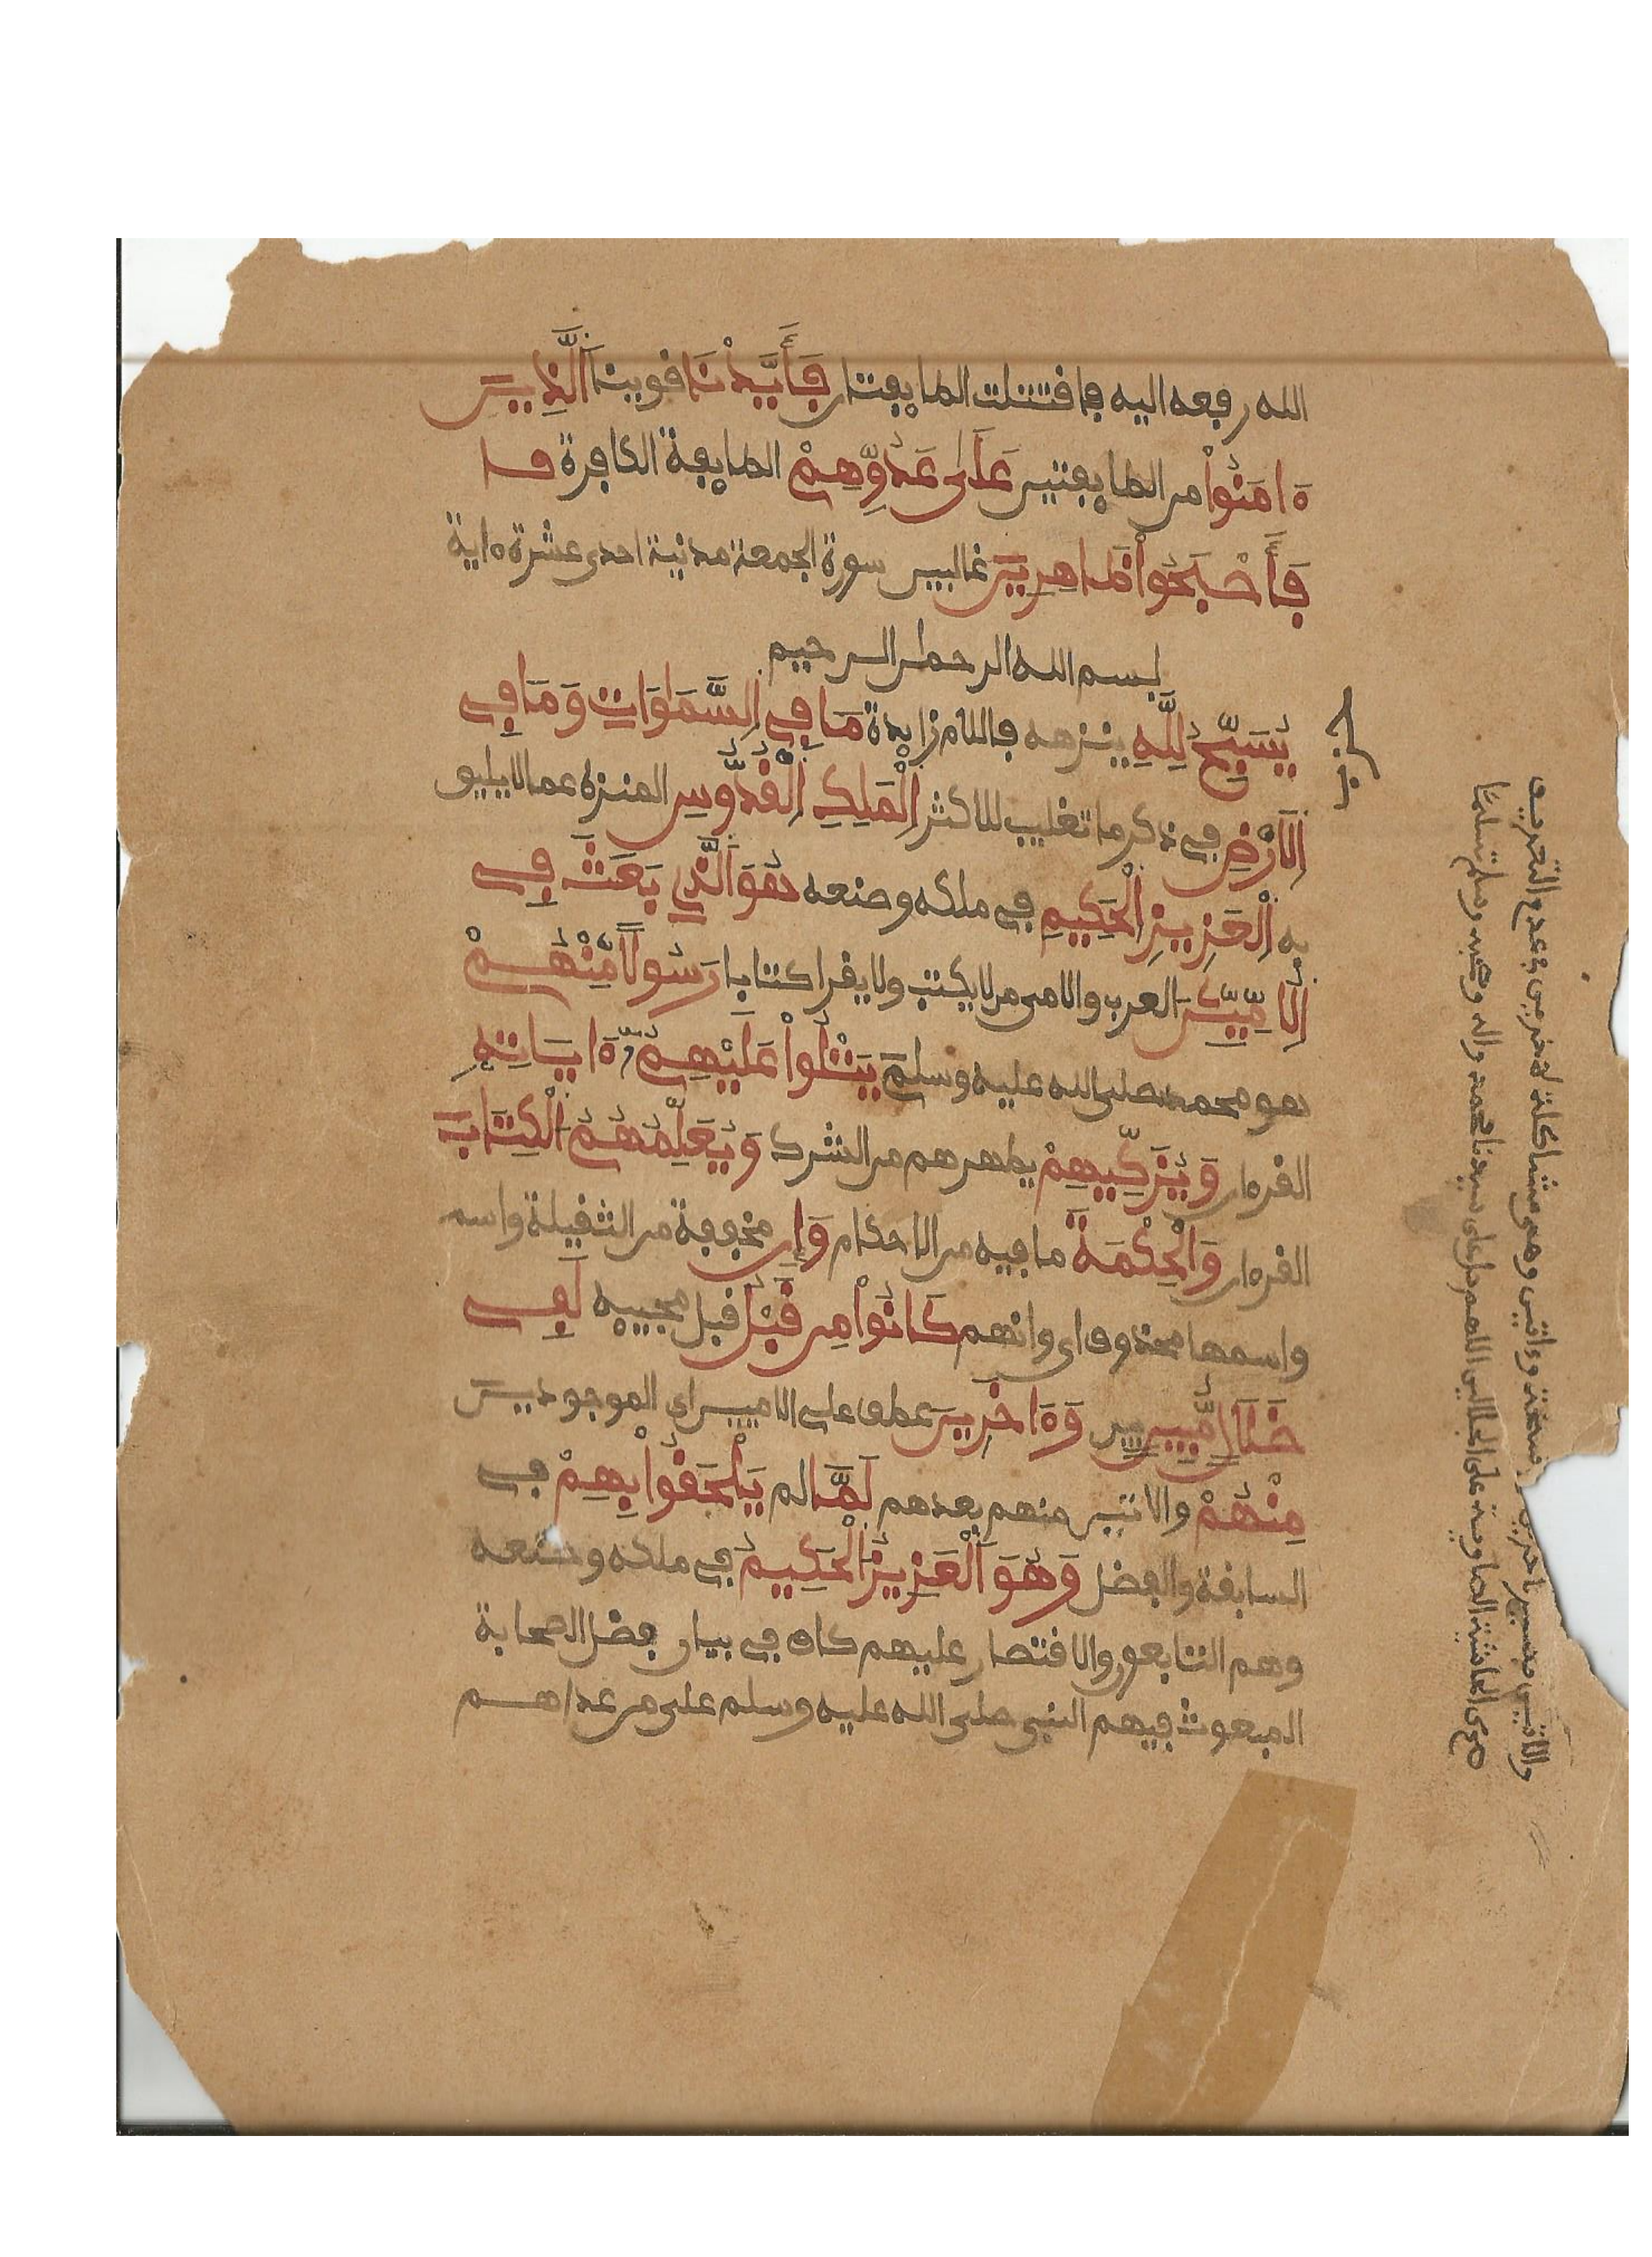 الله رفعه اليه فاقتتلت الطايفتان فَأَيَّدْنَا قوينا اَلَّذِينَ
ءَامَنُواْ من الطايفتين عَلَىٰ عَدُوِّهِمْ الطايفة الكافرة
فَأَصْبَحُواْ ظَاهِرِينَ غالبين سورة الجمعة مدنية احدى عشرة ءاية
بسم الله الرحمن الرحيم
يُسَبِّحُ لِلَّهِ ينزهه فاللام زايدة مَا فِي اِلسَّمَٰوَاتِ وَمَا فِي
اِلَارْضِ في ذكر ما تغليب للاكثر اِلْمَلِكِ اِلْقُدُّوسِ المنزه عما لا يليق
به اِلْعَزِيزِ اِلْحَكِيمِ في ملكه وصنعه هُوَ اَلَّذِي بَعَثَ فِي
اِلُامِّيِّـنَ العرب والامي من لا يكتب ولا يقرا كتابا رَسُولًا مِّنْهُمْ
هو محمد صلى الله عليه وسلم يَتْلُواْ عَلَيْهِمُۥٓ ءَايَاتِهِ
القرءان وَيُزَكِّيهِمْ يطهرهم من الشرك وَيُعَلِّمُهُمُ اُلْكِتَابَ
القرءان وَالْحِكْمَةَ ما فيه من الاحكام وَإِن مخففة من الثقيلة واسم
واسمها محذوف اي وانهم كَانُواْ مِن قَبْلُ قبل مجييه لَفِي
ضَلَالٍ مُّبِينٍ مبين وَءَاخَرِينَ عطف على الاميين اي الموجودين
مِنْهُمْ والاتين منهم بعدهم لَمَّا لم يَلْحَقُواْ بِهِمْ في
السابقة والفضل وَهُوَ اَلْعَزِيزُ اُلْحَكِيمُ في ملكه وصنعه
وهم التابعون والاقتصار عليهم كاف في بيان فضل الصحابة
المبعوث فيهم النبي صلى الله عليه وسلم على من عداهم